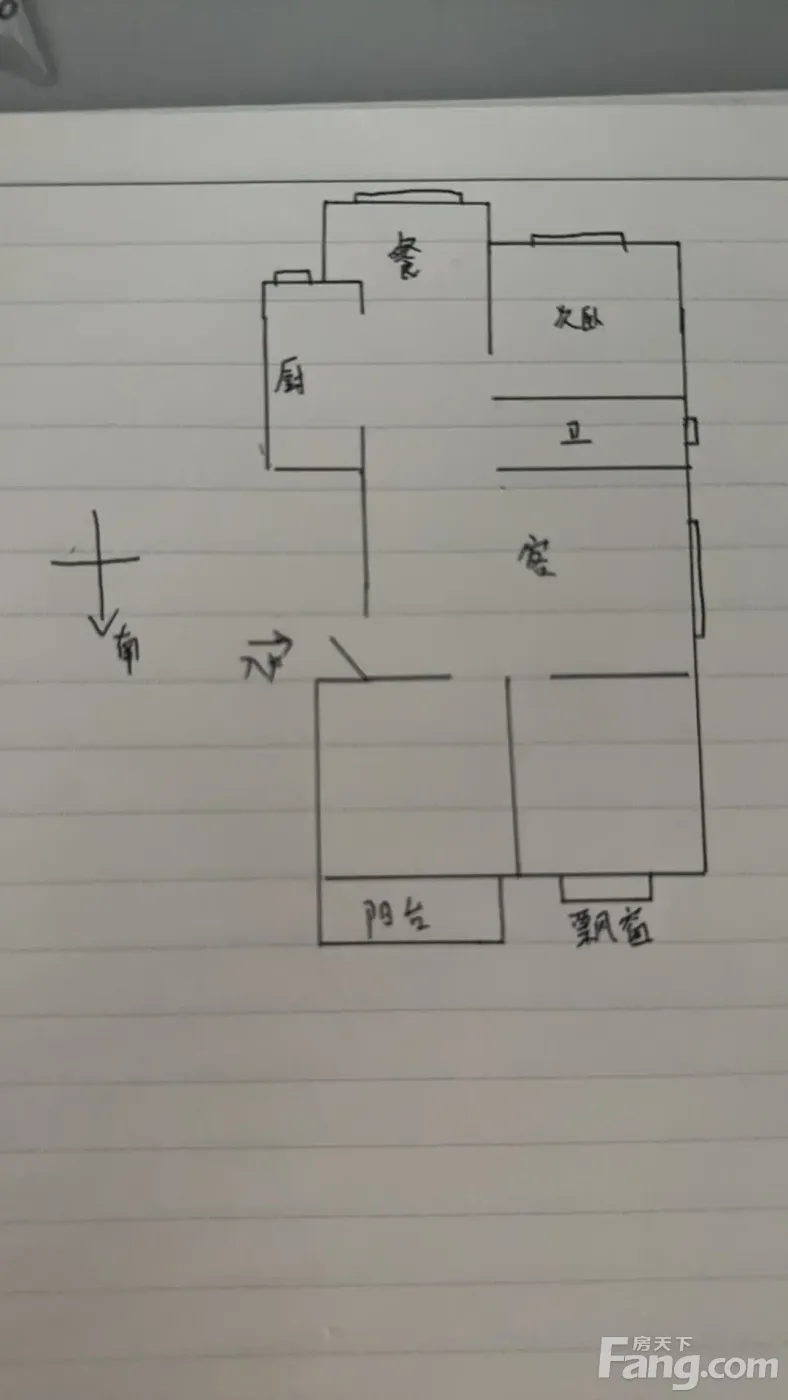 餐
次卧
厨
卫
客
南
入户
阳台
飘窗
房天下
Fang.com